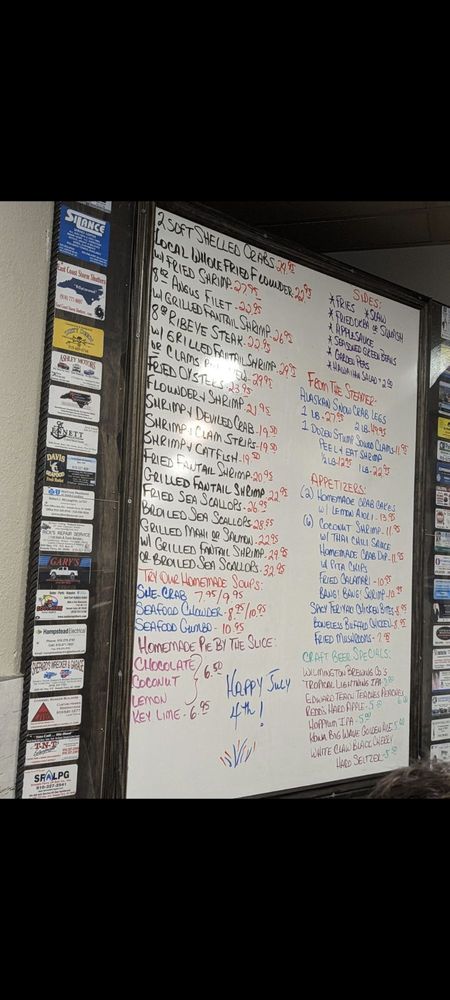 2 SOFT SHELLED CRABS 29.95
LOCAL WHOLE FRIED FLOUNDER - 22.95
W/ FRIED SHRIMP - 27.95
8oz ANGUS FILET - 22.95
W/ GRILLED FANTAIL SHRIMP 26.95
8oz RIBEYE STEAK - 22.95
W/ GRILLED FANTAIL SHRIMP - 29.95
or CLAMS - 29.95
FRIED OYSTERS - 23.95
FLOUNDER y SHRIMP - 21.95
SHRIMP y DEVILED CRAB - 19.50
SHRIMP y CLAM STRIPS - 19.50
SHRIMP y CATFISH - 19.50
FRIED FANTAIL SHRIMP - 20.95
GRILLED FANTAIL SHRIMP - 22.95
FRIED SEA SCALLOPS - 26.95
BROILED SEA SCALLOPS - 28.95
GRILLED MAHI or SALMON - 22.95
W/ GRILLED FANTAIL SHRIMP - 29.95
OR BROILED SEA SCALLOPS - 32.95
TRY OUR HOMEMADE SOUPS:
SHE CRAB 7.95/9.95
SEAFOOD CHOWDER - 8.95/10.95
SEAFOOD GUMBO - 10.95
HOMEMADE PIE BY THE SLICE:
CHOCOLATE
COCONUT 6.50
LEMON
KEY LIME - 6.95
HAPPY JULY
4th!
SIDES:
*FRIES *SLAW
*FRIED OKRA or SQUASH
*APPLESAUCE
*SEASONED GREEN BEANS
*GARDEN PEAS
*HAWAIIAN SALAD + 2.00
FROM THE STEAMER:
ALASKAN SNOW CRAB LEGS
1 LB - 27.95 2 LB - 49.95
1 DOZEN STUMP SOUND CLAMS - 11.95
PEEL y EAT SHRIMP
1/2 LB 12.95 1 LB - 22.95
APPETIZERS:
(2) HOMEMADE CRAB CAKES
W/ LEMON AIOLI - 13.95
(6) COCONUT SHRIMP - 11.95
W/ THAI CHILI SAUCE
HOMEMADE CRAB DIP - 11.95
W/ PITA CHIPS
FRIED CALAMARI - 10.95
BANG! BANG! SHRIMP - 10.95
SPICY TERIYAKI CHICKEN BITES - 8.95
BONELESS BUFFALO CHICKEN - 8.95
FRIED MUSHROOMS - 7.95
CRAFT BEER SPECIALS:
WILMINGTON BREWING CO'S
TROPICAL LIGHTNING IPA
EDWARD TEACH TEACHES PEACHES
REDDS HARD APPLE - 5.00
HOPPYUM IPA - 5.00
KONA BIG WAVE GOLDEN ALE
WHITE CLAW BLACK CHERRY
HARD SELTZER - 5.00
SILANCE
East Coast Storm Shutters
ASHLEY MOTORS
DAVIS
SEAFOOD
RICK'S REPAIR SERVICE
GARY'S
Hampstead Electrical
SHEPARD'S WRECKER & GARAGE
T-N-T
SR LPG